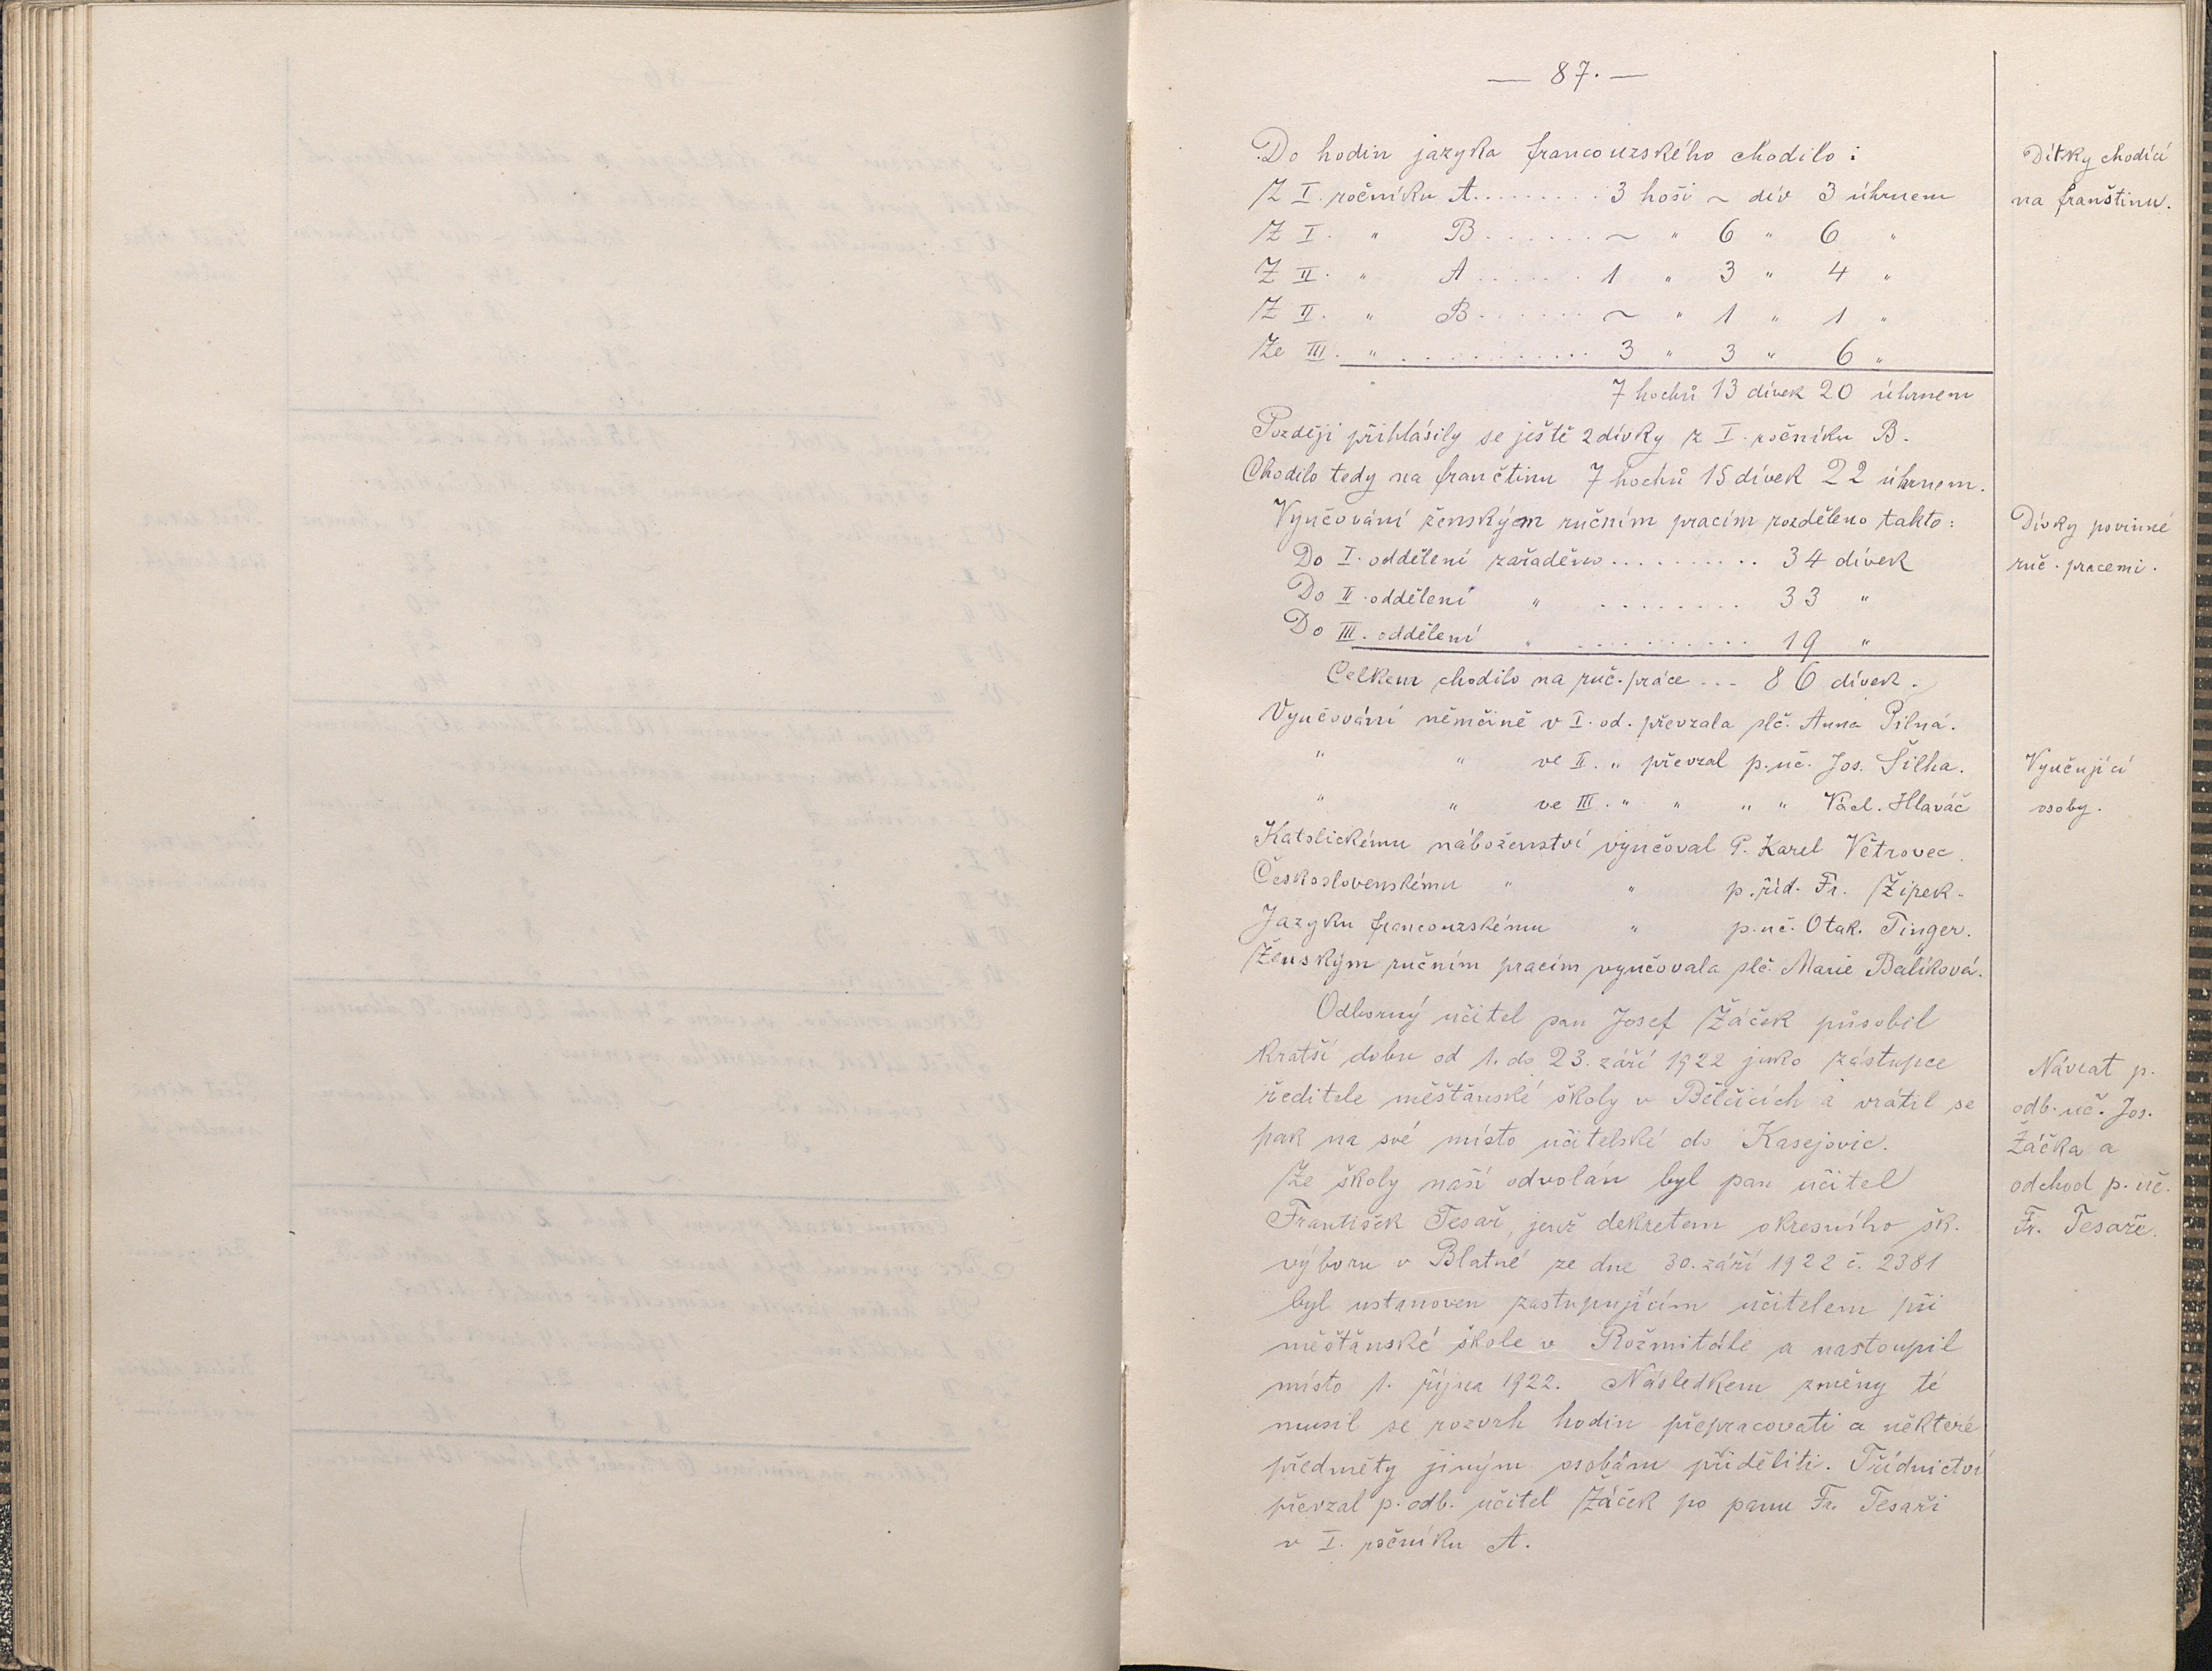 — 87. —
Do hodin jazyka francouzského chodilo:
Z I. ročníku A......... 3 hoši ~ dív 3 úhrnem
Z I. " B...... ~ " 6 " 6 "
Z II. " A....... 1 " 3 " 4 "
Z II. " B...... ~ " 1 " 1 "
Ze III. " ............ 3 " 3 " 6 "
7 hochů 13 dívek 20 úhrnem
Později přihlásily se ještě 2 dívky z I. ročníku B.
Chodilo tedy na frančtinu 7 hochů 15 dívek 22 úhrnem.
Vyučování ženským ručním pracím rozděleno takto:
Do I. oddělení zařaděno.......... 34 dívek
Do II. oddělení " ........ 33 "
Do III. oddělení " ........... 19 "
Celkem chodilo na ruč. práce ... 86 dívek.
Vyučování němčině v I. od. převzala slč. Anna Pilná.
" " ve II. " převzal p. uč. Jos. Šilha.
" " ve III. " " " " Václ. Hlaváč
Katolickému náboženství vyučoval P. Karel Větrovec.
Československému " " p. říd. Fr. Žipek.
Jazyku francouzskému " p. uč. Otak. Tinger.
Ženským ručním pracím vyučovala slč. Marie Balíková.
Odborný učitel pan Josef Žáček působil
kratší dobu od 1. do 23. září 1922 jako zástupce
ředitele měšťanské školy v Bělčicích a vrátil se
pak na své místo učitelské do Kasejovic.
Ze školy naší odvolán byl pan učitel
František Tesař, jenž dekretem okresního šk.
výboru v Blatné ze dne 30. září 1922 č. 2381
byl ustanoven zastupujícím učitelem při
měšťanské škole v Rožmitále a nastoupil
místo 1. října 1922. Následkem změny té
musil se rozvrh hodin přepracovati a některé
předměty jiným osobám přiděliti. Třídnictví
převzal p. odb. učitel Žáček po panu Fr. Tesaři
v I. ročníku A.
Dítky chodící
na franštinu.
Dívky povinné
ruč. pracemi.
Vyučující
osoby.
Návrat p.
odb. uč. Jos.
Žáčka a
odchod p. uč.
Fr. Tesaře.